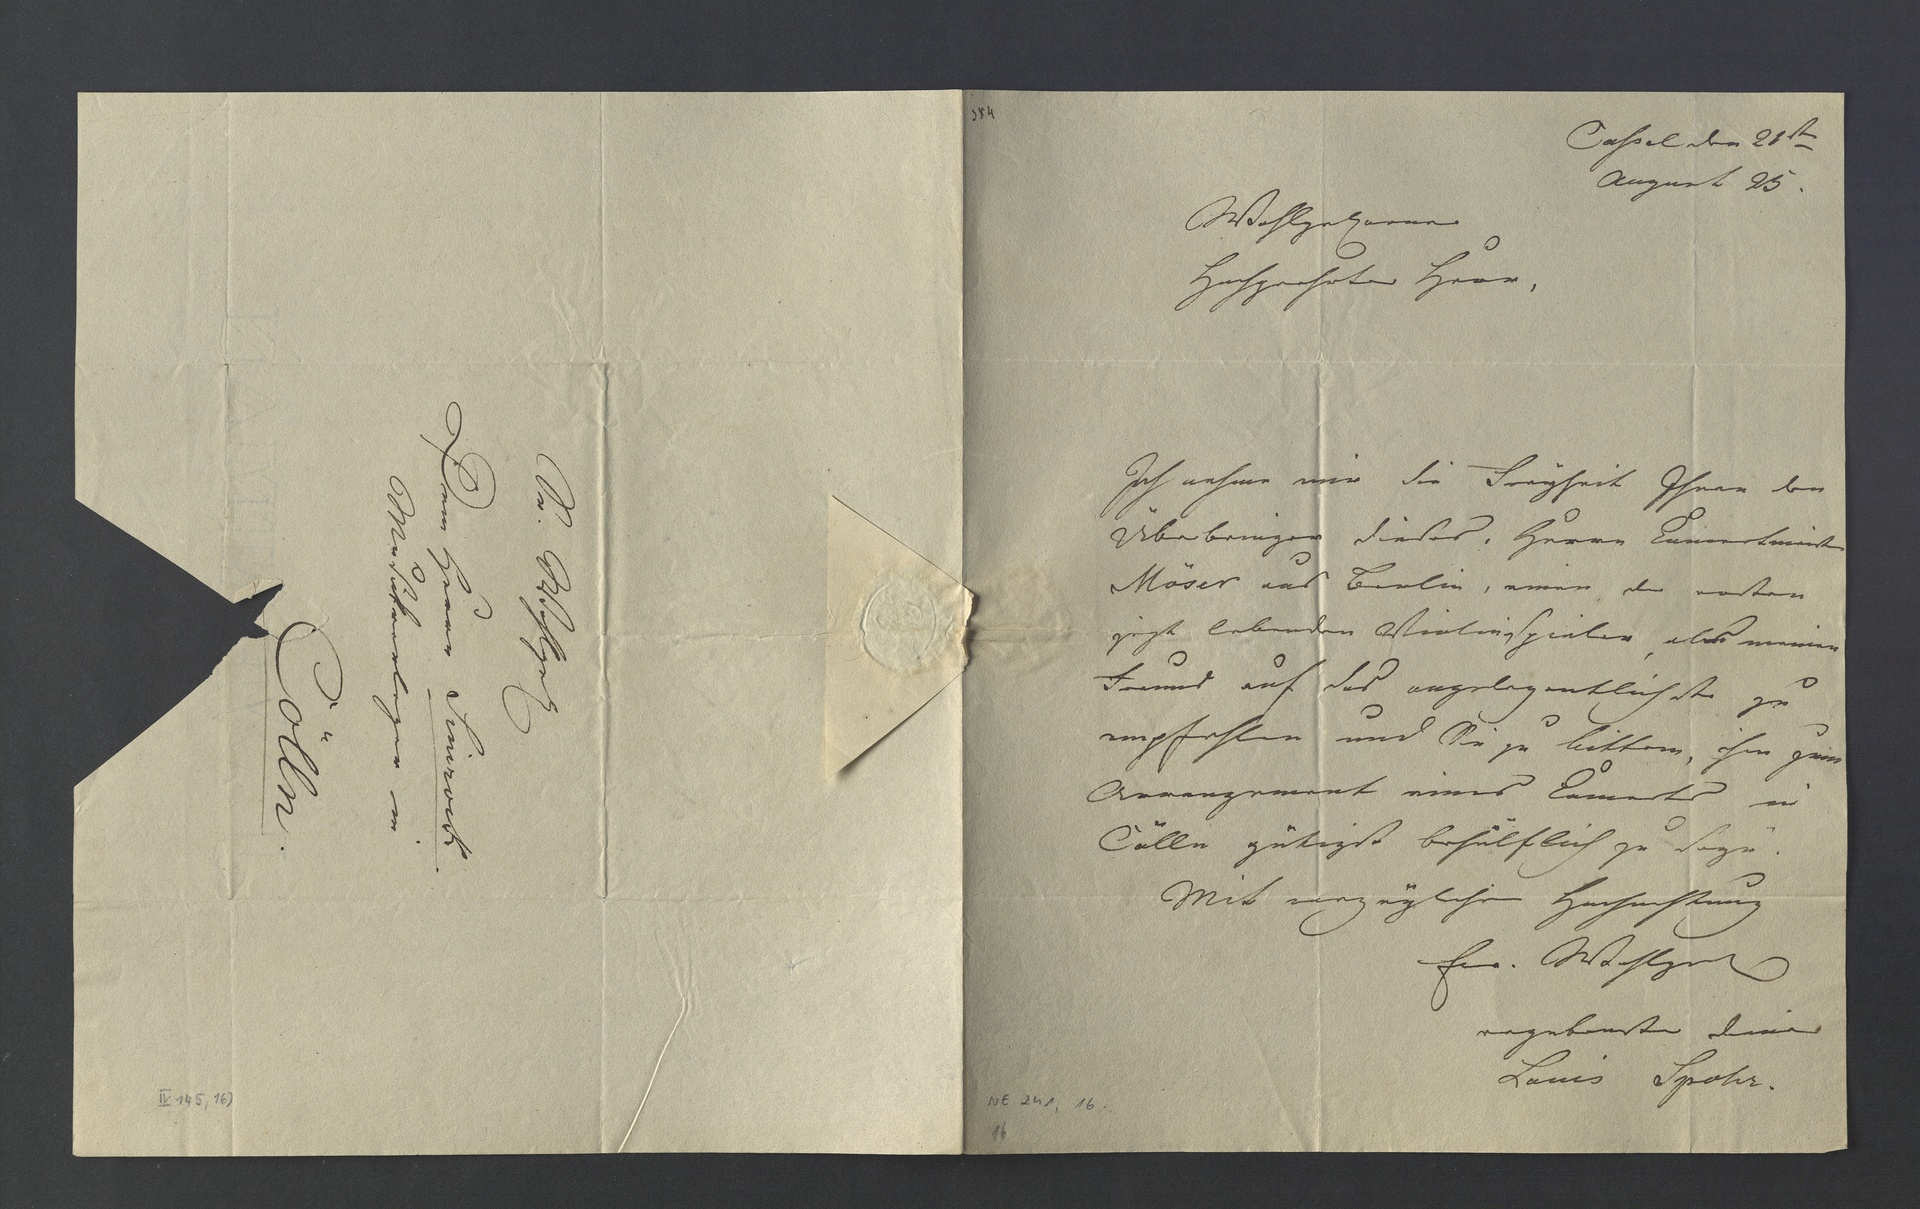 Sr. Wohlgeb
Dem Herrn Simrock
Musikverleger in
Cölln.
384
Cassel den 21st
August 25.
Wohlgeborner
Hochgeehrter Herr,
Ich nehme mir die Freyheit Ihnen den
Überbringer dieses, Herrn Concertmeister
Möser aus Berlin, einen der ersten
jezt lebenden Violinspieler, als meinen
Freund auf das angelegentlichste zu
empfehlen und Sie zu bitten, ihm zum
Arrangement eines Concerts in
Cölln gütigst behülflich zu seyn.
Mit vorzüglicher Hochachtung
Ew. Wohlgeb
ergebenster Diener
Louis Spohr.
IV 145, 16)
NE 241, 16.
16